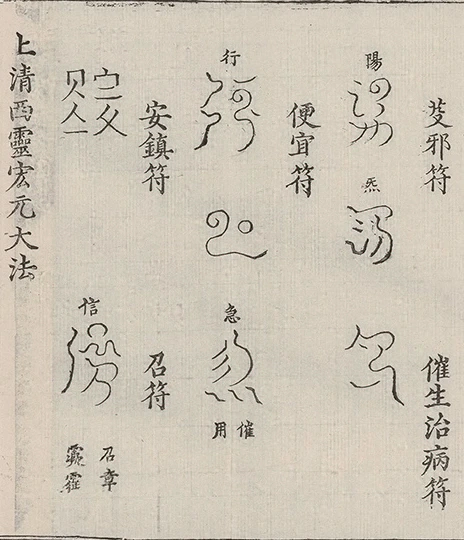 芟邪符
催生治病符
陽
炁
便宜符
行
急
催
用
安鎮符
召符
信
上清西靈宏元大法